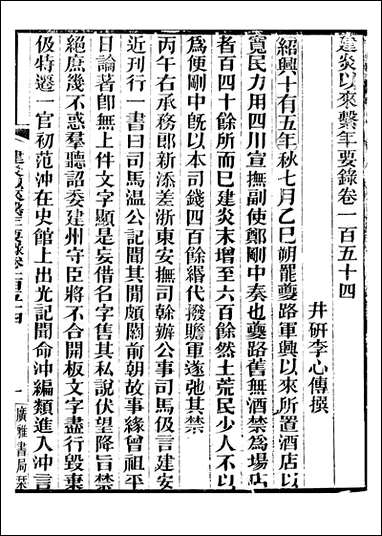 建炎以來繫年要錄卷一百五十四
井研李心傳撰
紹興十有五年秋七月乙巳朔罷夔路軍興以來所置酒店以
寬民力用四川宣撫副使鄭剛中奏也夔路舊無酒禁為場店
者百四十餘所而已建炎末增至六百餘然土荒民少人不以
為便剛中旣以本司錢四百餘緡代撥贍軍遂弛其禁
丙午右承務郎新添差浙東安撫司幹辦公事司馬伋言建安
近刊行一書曰司馬溫公記聞其閒頗關前朝故事緣曾祖平
日論著卽無上件文字顯是妄借名字售其私說伏望降旨禁
絕庶幾不惑羣聽詔委建州守臣將不合開板文字盡行毀棄
伋特遷一官初范沖在史館上出光記聞命沖編類進入沖言
建炎以來繫年要錄卷一百五十四
一
廣雅書局栞